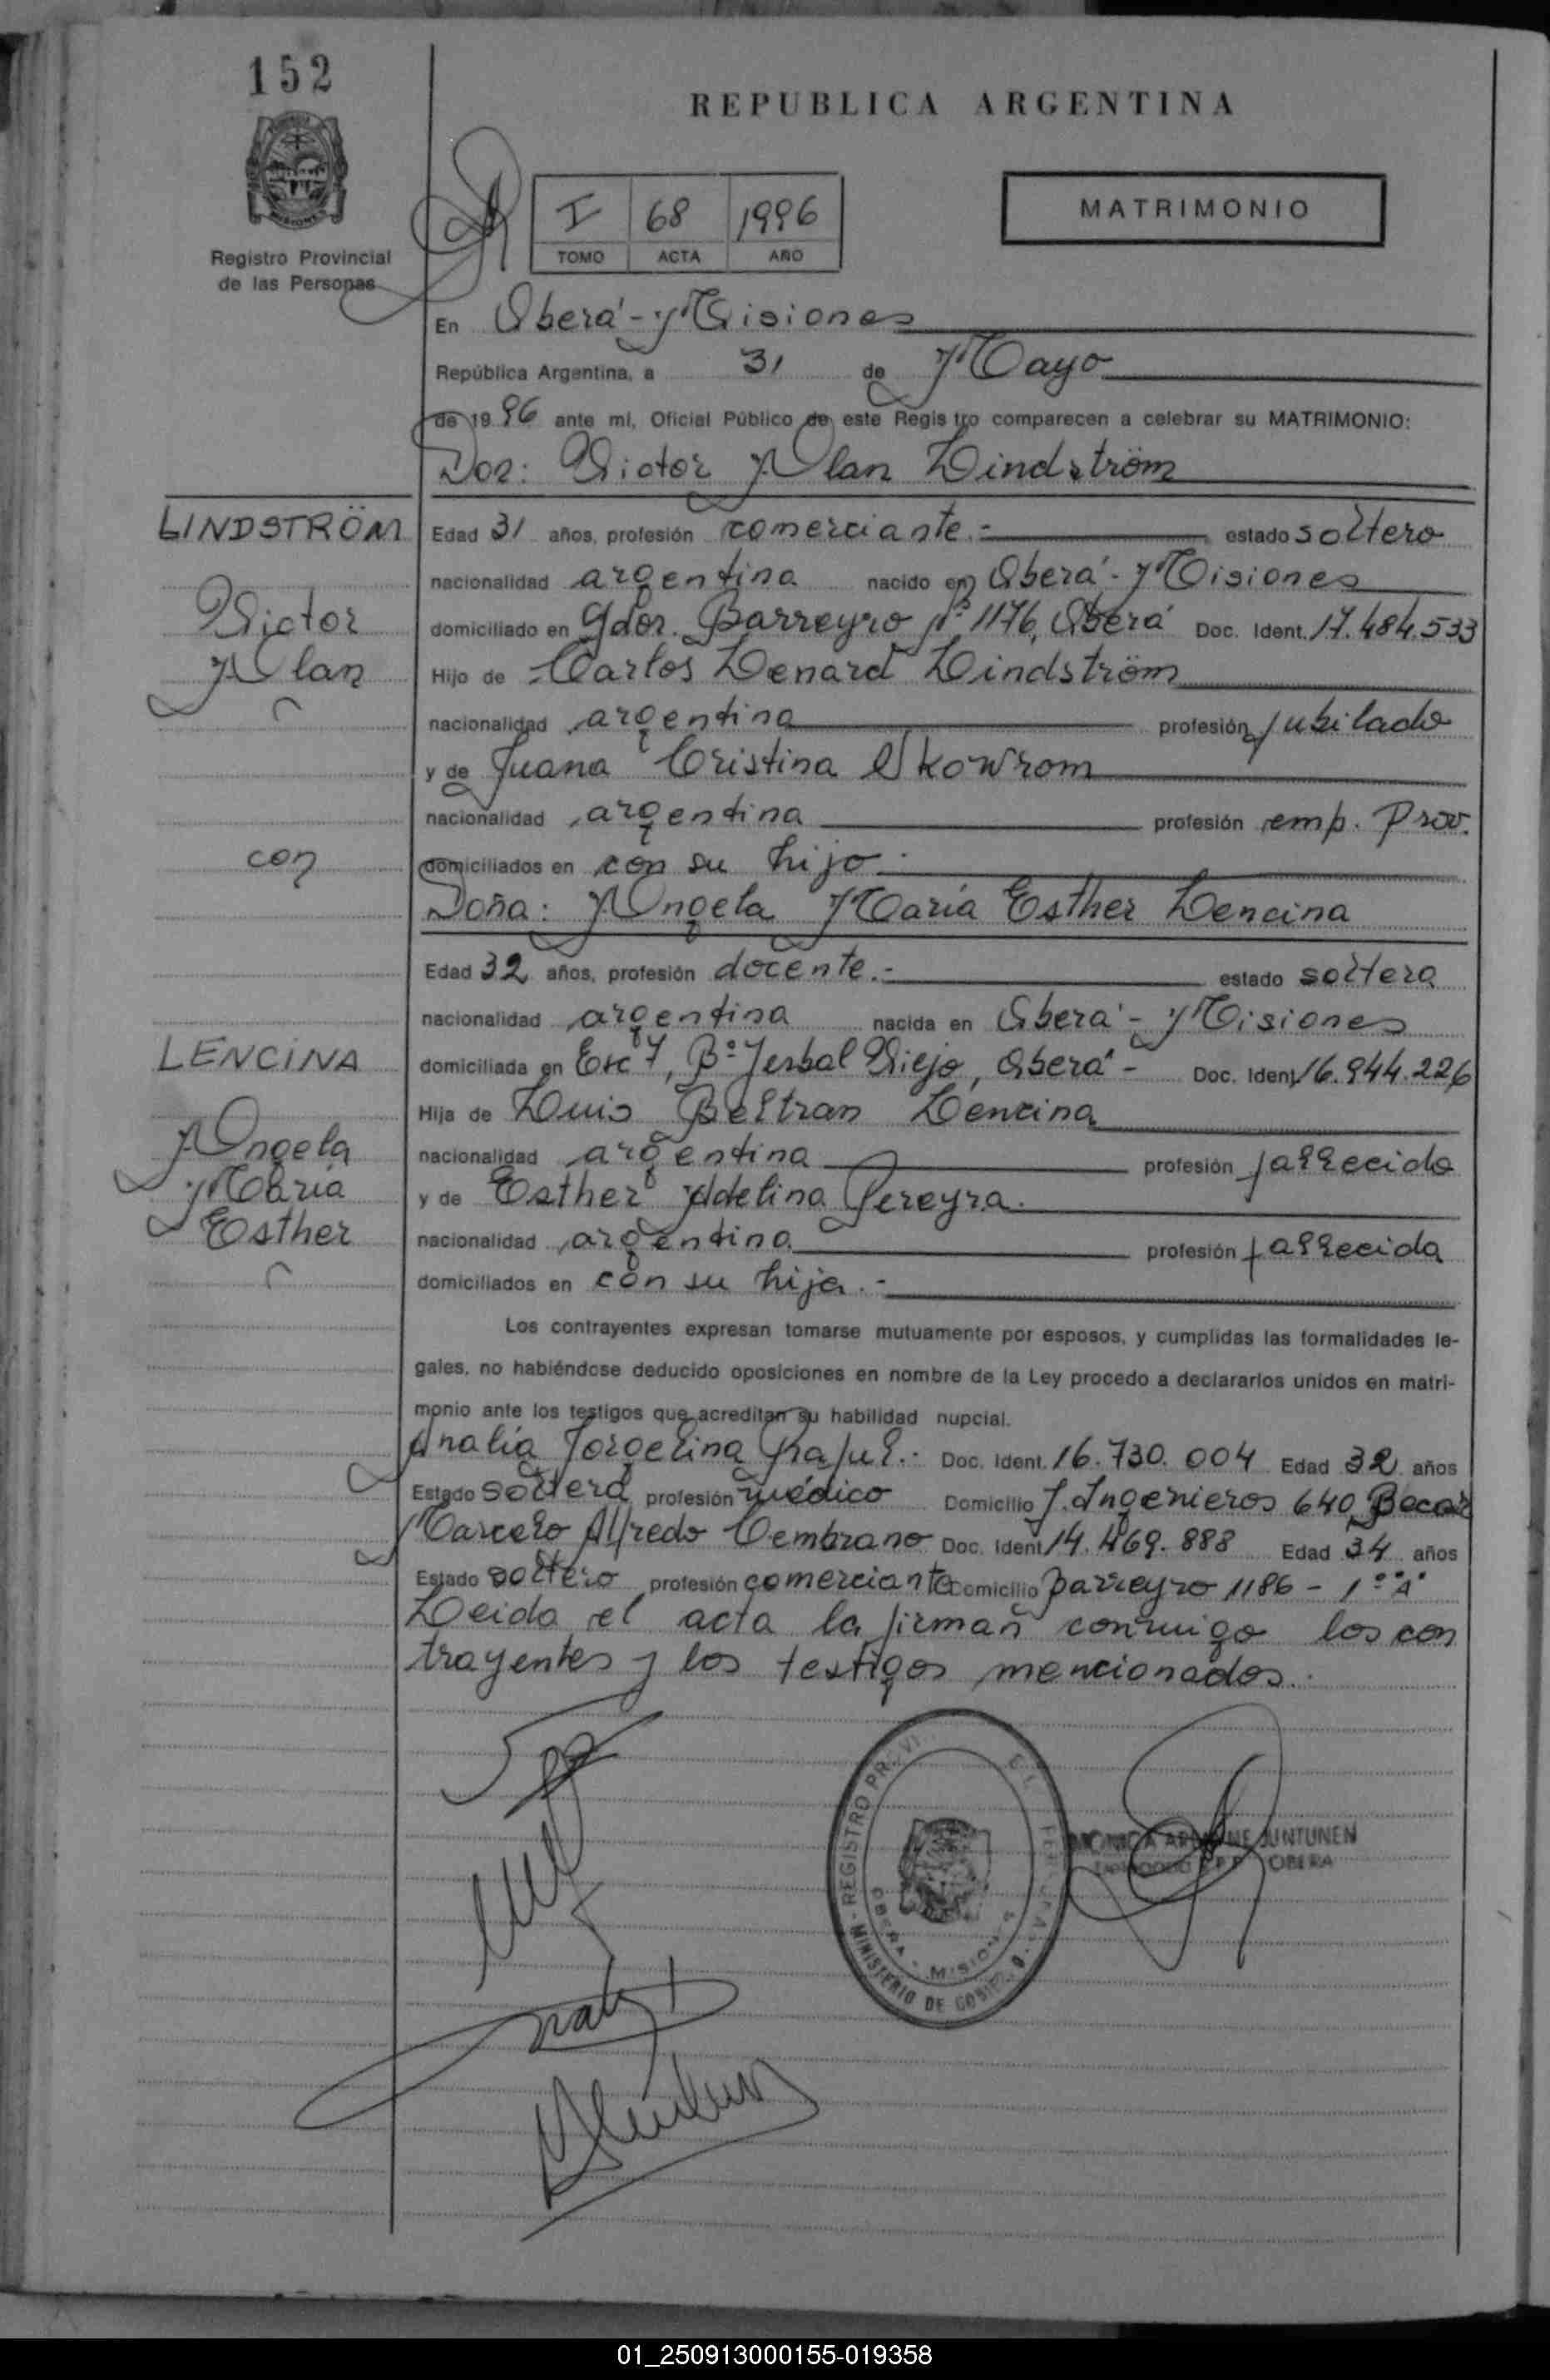 152
REPUBLICA ARGENTINA
Registro Provincial
de las Personas
I 68 1996
TOMO ACTA AÑO
MATRIMONIO
En Oberá - Misiones
República Argentina, a 31 de Mayo
de 1996 ante mí, Oficial Público de este Registro comparecen a celebrar su MATRIMONIO:
Don: Victor Alan Lindström
LINDSTRÖM
Victor
Alan
Edad 31 años, profesión comerciante.- estado soltero
nacionalidad argentina nacido en Oberá - Misiones
domiciliado en Gdor. Barreyro Nº 1176, Oberá Doc. Ident. 17.484.533
Hijo de Carlos Lenard Lindström
nacionalidad argentina profesión jubilado
y de Juana Cristina Skowrom
nacionalidad argentina profesión emp. Prov.
con
domiciliados en con su hijo.-
Doña: Angela María Esther Lencina
Edad 32 años, profesión docente.- estado soltera
nacionalidad argentina nacida en Oberá - Misiones
LENCINA
Angela
María
Esther
domiciliada en Esc 7, Bº Yerbal Viejo, Oberá - Doc. Ident. 16.944.226
Hija de Luis Beltran Lencina
nacionalidad argentina profesión fallecido
y de Esther Adelina Pereyra.
nacionalidad argentina profesión fallecida
domiciliados en con su hija.-
Los contrayentes expresan tomarse mutuamente por esposos, y cumplidas las formalidades le-
gales, no habiéndose deducido oposiciones en nombre de la Ley procedo a declararlos unidos en matri-
monio ante los testigos que acreditan su habilidad nupcial.
Analía Jorgelina Doc. Ident. 16.730.004 Edad 32 años
Estado soltera profesión médico Domicilio J. Ingenieros 640
Marcelo Alfredo Cembrano Doc. Ident 14.469.888 Edad 34 años
Estado soltero profesión comerciante Domicilio Barreyro 1186 - 1º "A"
Leida el acta la firman conmigo los con
trayentes y los testigos mencionados.
REGISTRO
MINISTERIO DE
OBERA - MISIONES
JUNTUNEN
OBERA
01_250913000155-019358